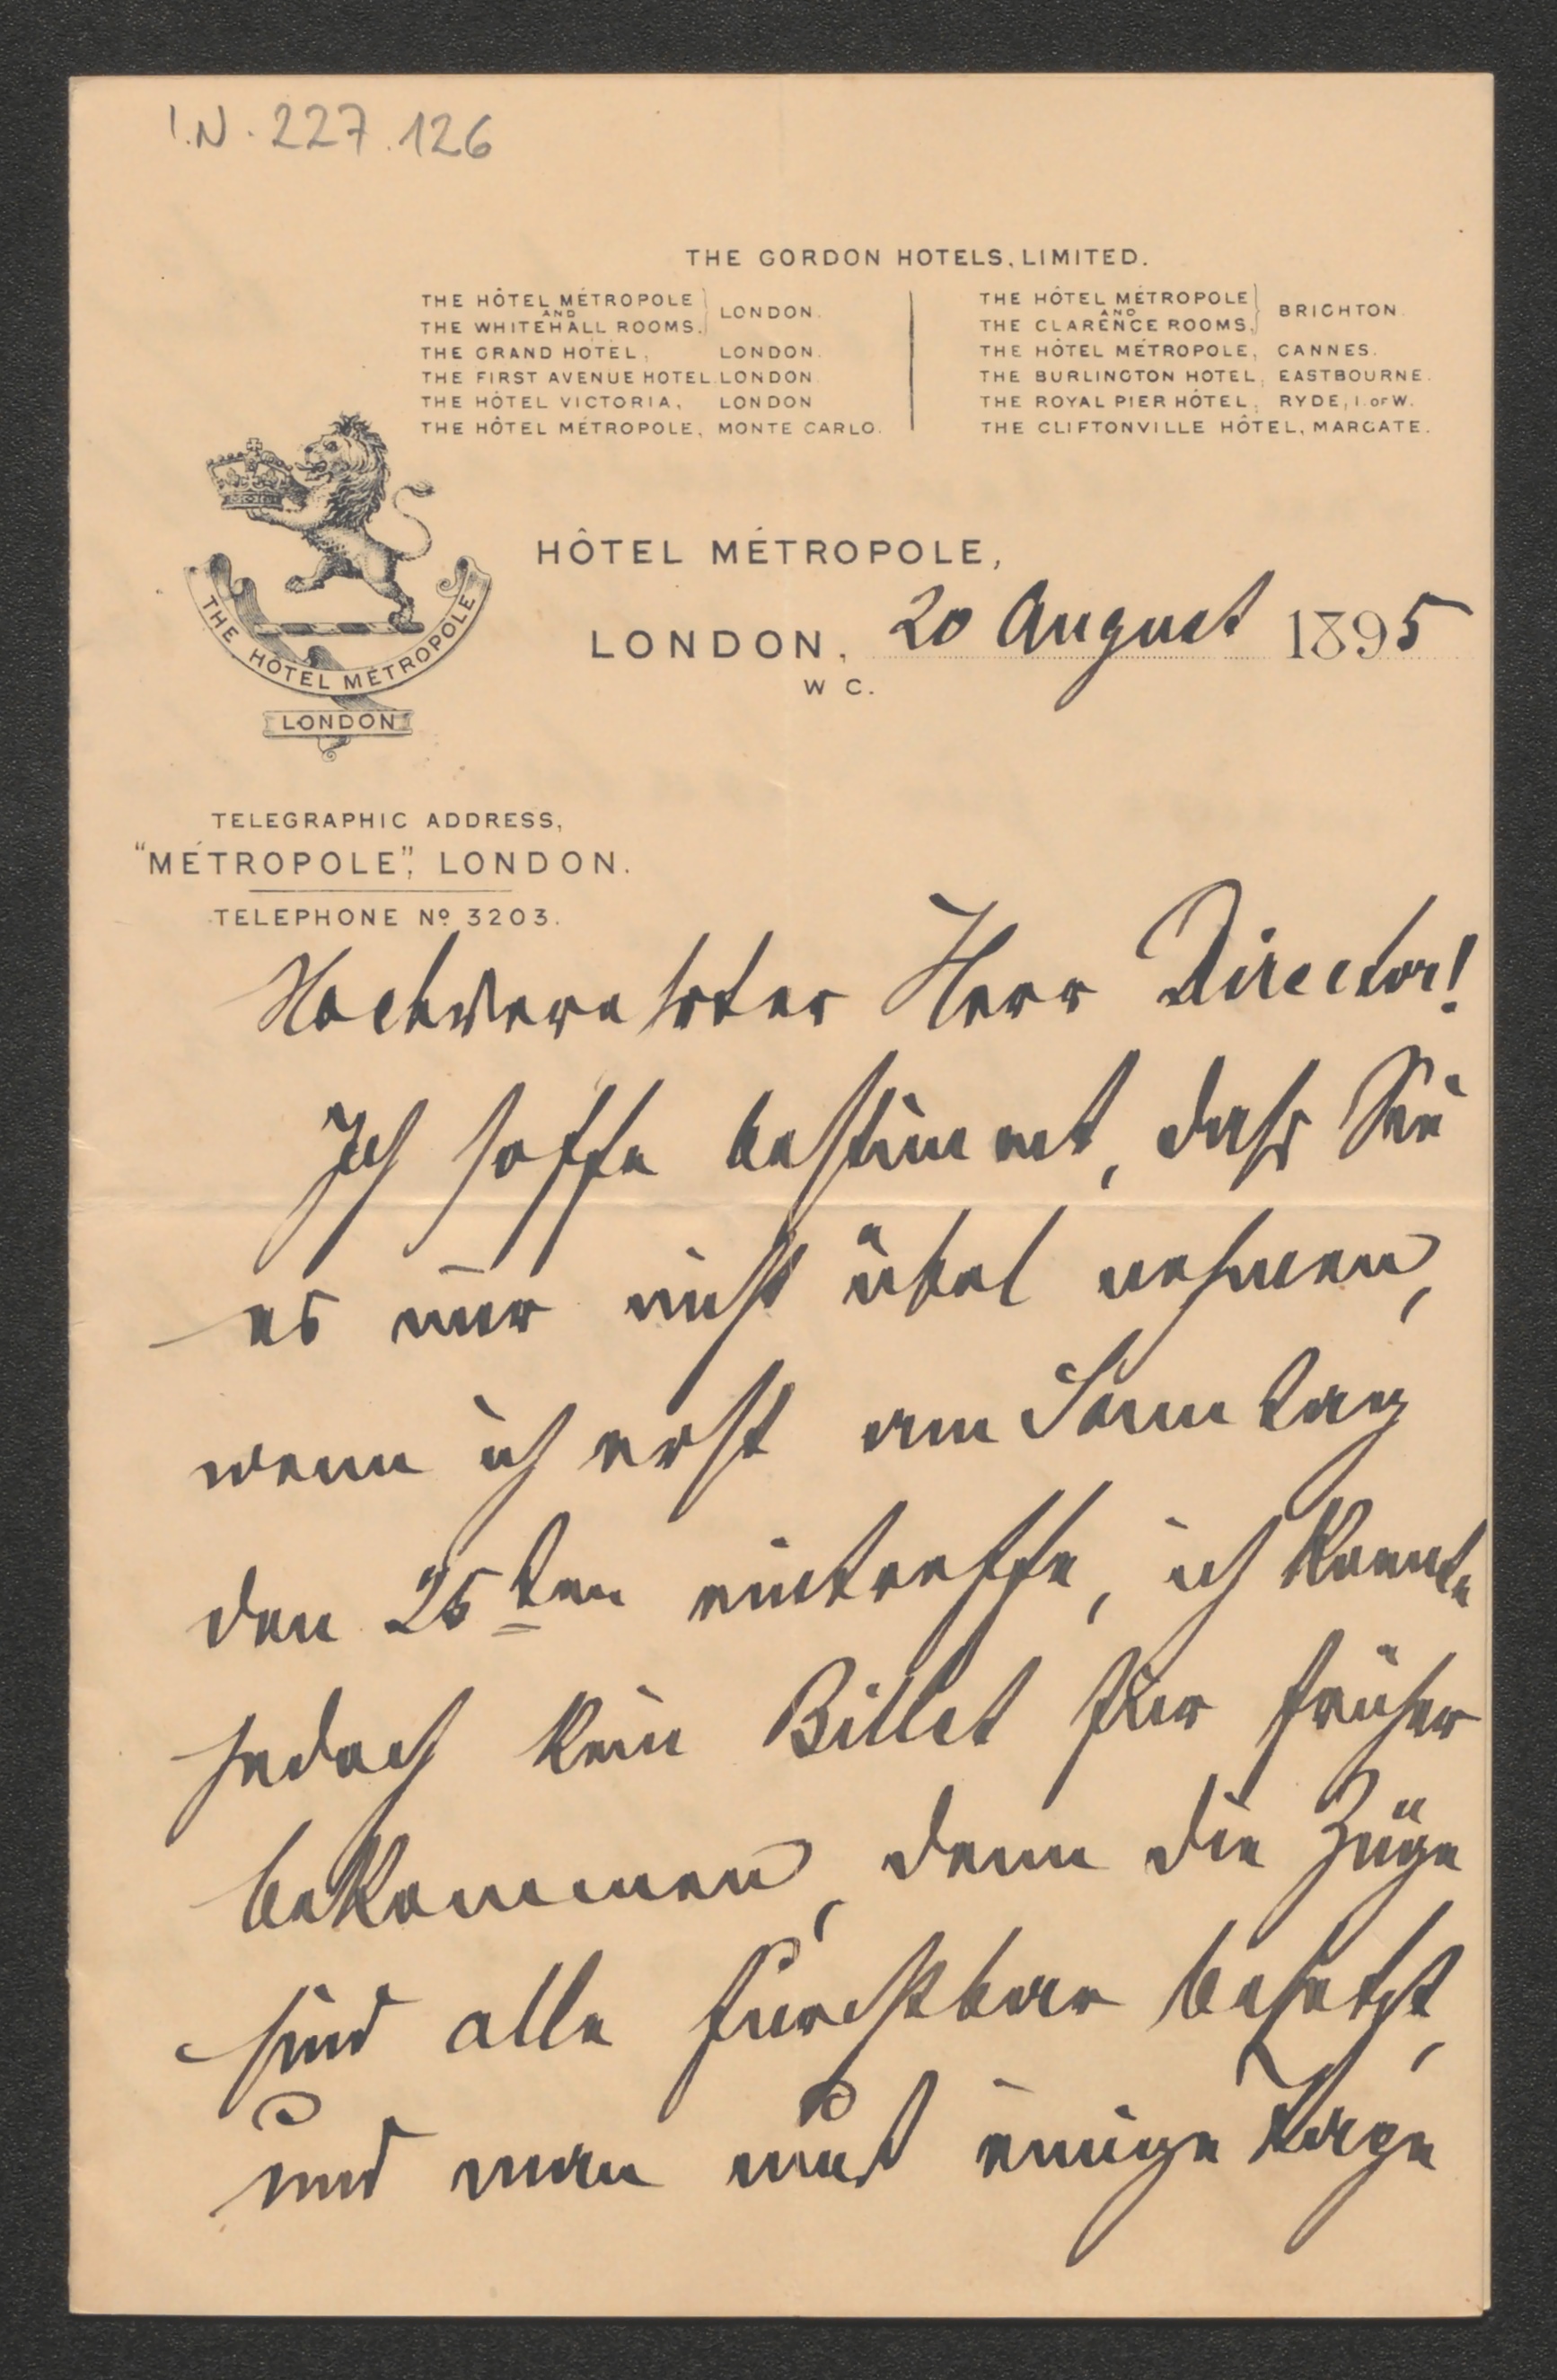 I.N. 227.126
THE GORDON HOTELS, LIMITED.
THE HÔTEL MÉTROPOLE
AND
THE WHITEHALL ROOMS, LONDON.
THE GRAND HOTEL, LONDON.
THE FIRST AVENUE HOTEL, LONDON.
THE HÔTEL VICTORIA, LONDON
THE HÔTEL MÉTROPOLE, MONTE CARLO.
THE HÔTEL MÉTROPOLE
AND
THE CLARENCE ROOMS, BRIGHTON.
THE HÔTEL MÉTROPOLE, CANNES.
THE BURLINGTON HOTEL, EASTBOURNE.
THE ROYAL PIER HÔTEL, RYDE, I. OF W.
THE CLIFTONVILLE HÔTEL, MARGATE.
THE HÔTEL MÉTROPOLE
LONDON
HÔTEL MÉTROPOLE,
LONDON, 20 August 1895
W C.
TELEGRAPHIC ADDRESS,
"MÉTROPOLE", LONDON.
TELEPHONE Nº 3203.
Hochverehrter Herr Director!
Ich hoffe bestimmt, dass Sie
es mir nicht übel nehmen,
wenn ich erst am Sonntag
den 25ten eintreffe, ich konnte
jedoch kein Billet für früher
bekommen, denn die Züge
sind alle furchtbar besetzt,
und man muß einige Tage